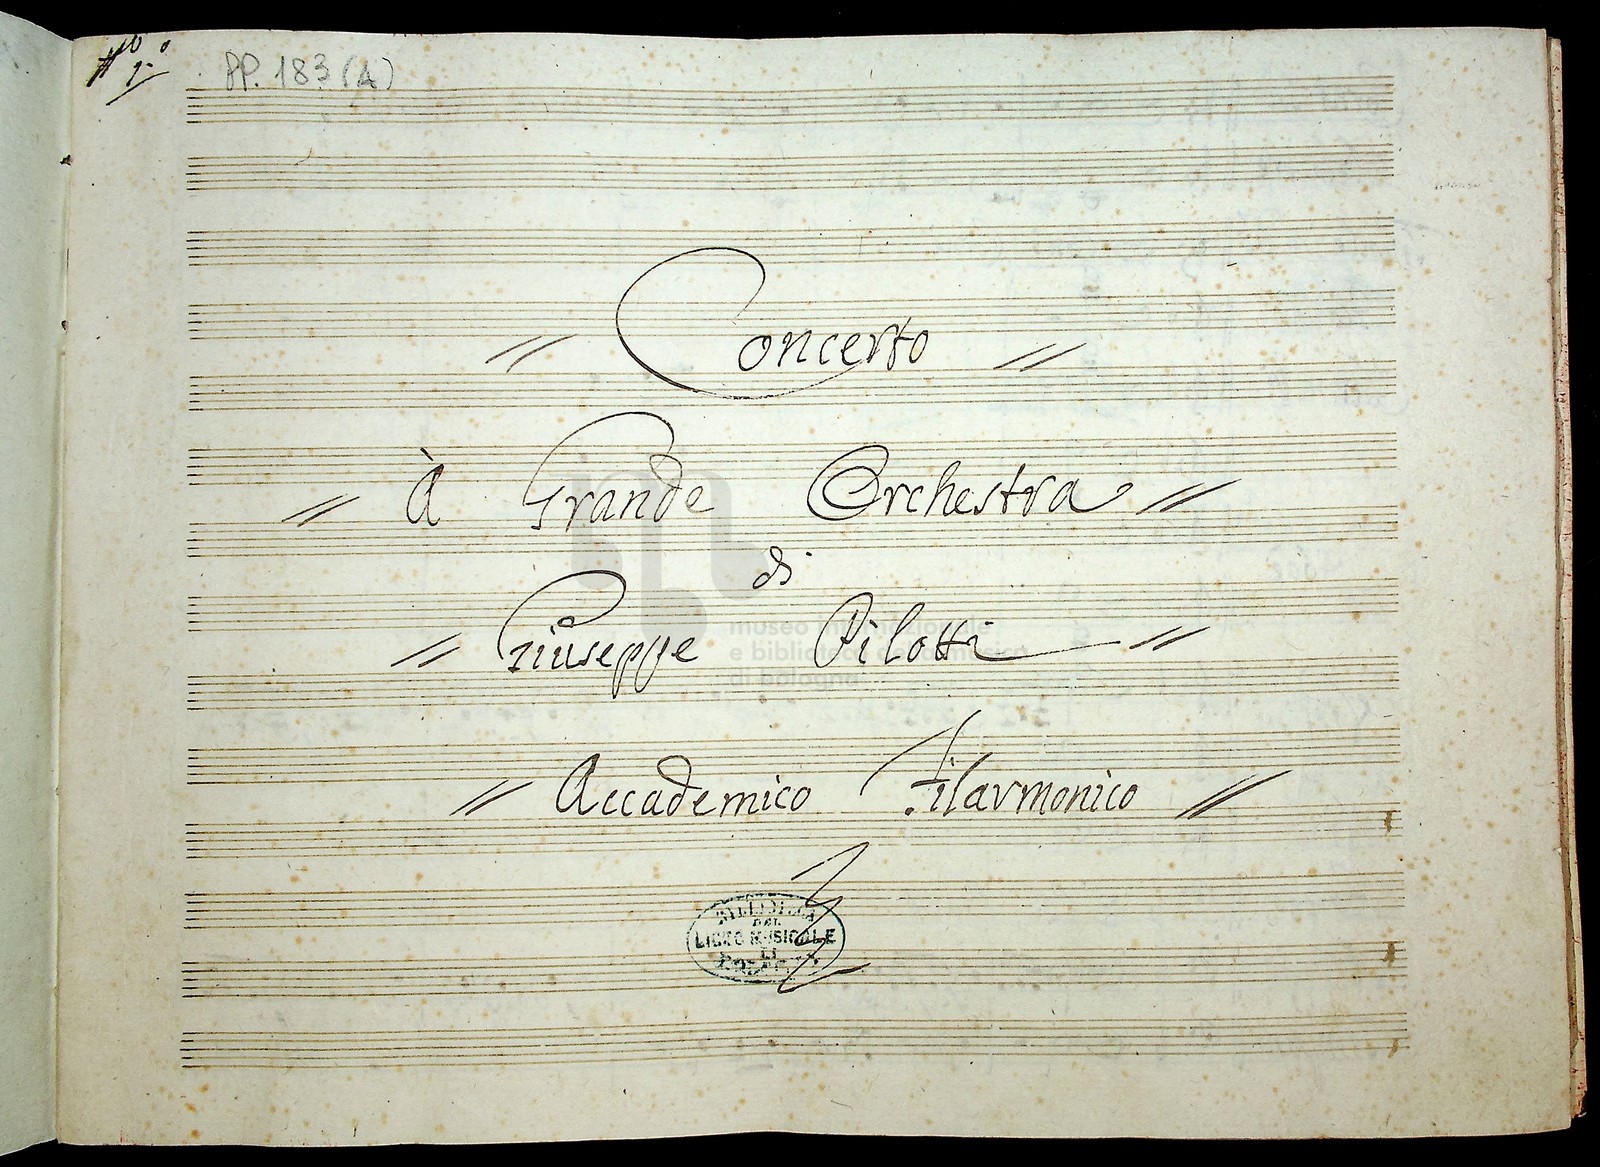 PP. 183 (A)
// Concerto //
// À Grande Orchestra //
di
// Giuseppe Pilotti //
museo internazionale
e biblioteca della musica
di bologna
// Accademico Filarmonico //
BIBLIOTECA
DEL
LICEO MUSICALE
DI
BOLOGNA